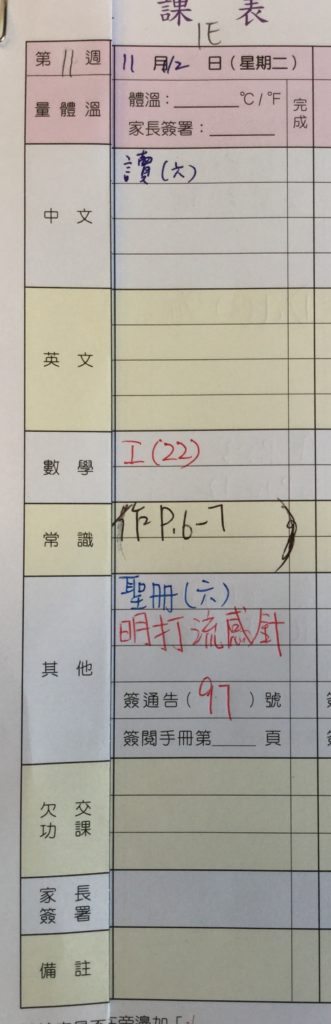 課表
1E
第 11 週 11 月 12 日(星期二)
量體溫 體溫:______ ℃/℉ 完成
家長簽署:______
中文 讀(六)
英文
數學 工(22)
常識 (作 P.6-7)
其他 聖冊(六)
明打流感針
簽通告( 97 )號
簽閱手冊第____頁
欠交功課
家長簽署
備註